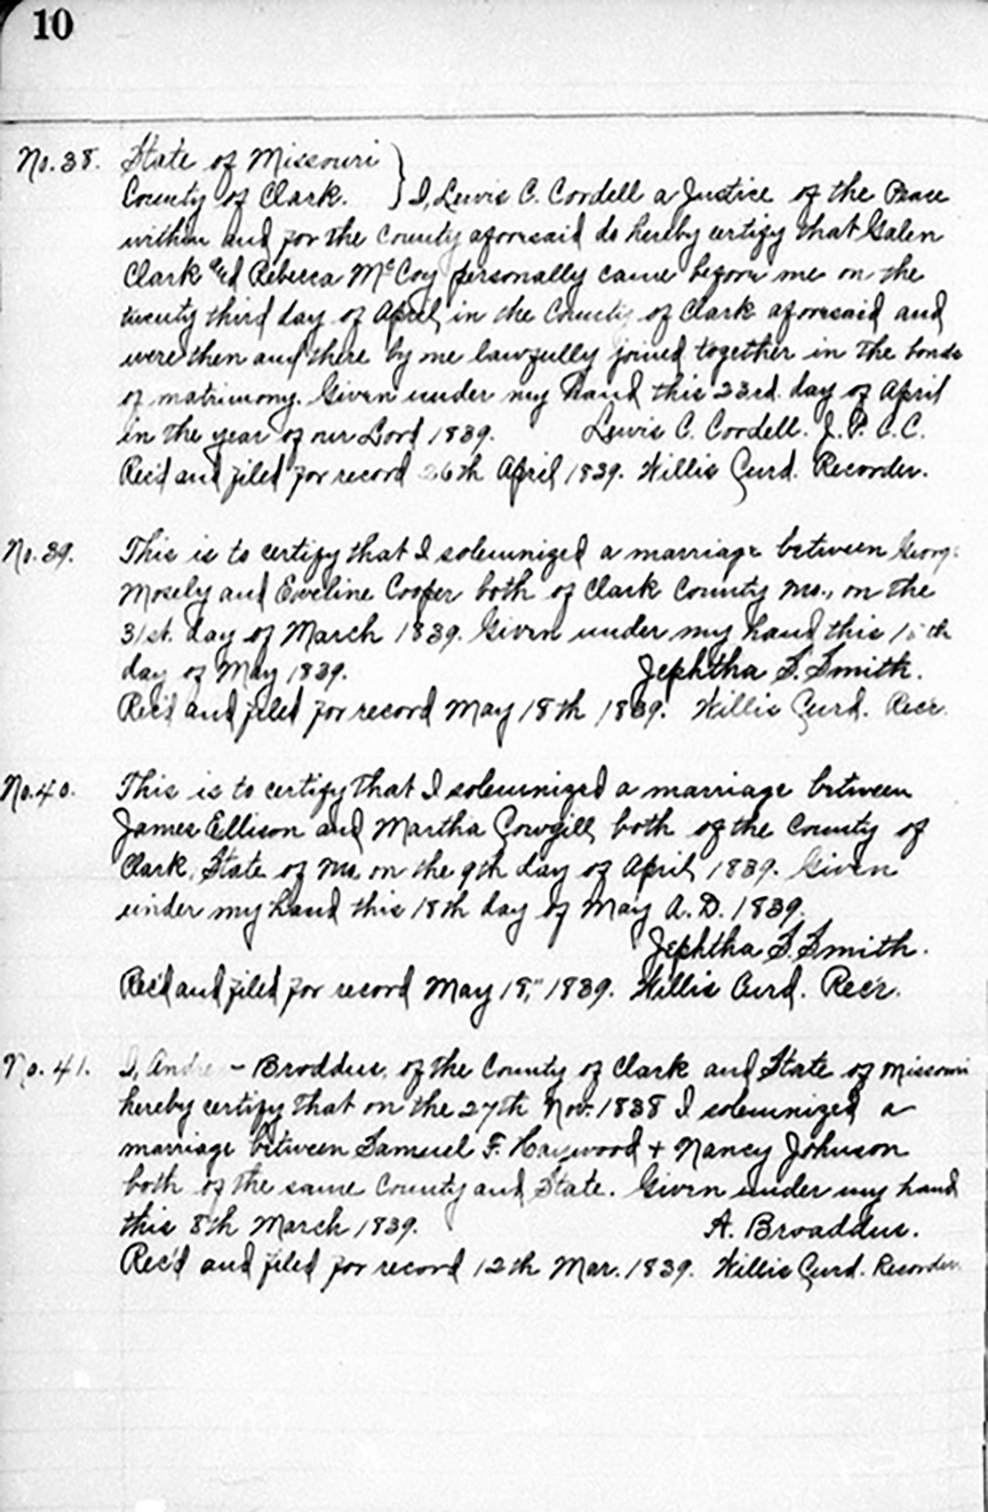 10
No. 38. State of Missouri }
County of Clark. } I, Lewis C. Cordell a Justice of the Peace
within and for the County aforesaid do hereby certify that Galen
Clark and Rebecca McCoy personally came before me on the
twenty third day of April, in the County of Clark aforesaid and
were then and there by me lawfully joined together in the bonds
of matrimony. Given under my hand this 23rd. day of April
in the year of our Lord 1839. Lewis C. Cordell. J. P. C. C.
Rec'd and filed for record 26th April 1839. Willis Curd. Recorder.
No. 39. This is to certify that I solemnized a marriage between George
Mosely and Eveline Cooper both of Clark County Mo., on the
31st. day of March 1839. Given under my hand this
day of May 1839. Jephtha S. Smith.
Rec'd and filed for record May 18th 1839. Willis Curd. Rec'r.
No. 40. This is to certify that I solemnized a marriage between
James Ellison and Martha Cowgill, both of the County of
Clark, State of Mo. on the 9th day of April, 1839. Given
under my hand this 18th day of May A. D. 1839.
Jephtha S. Smith.
Rec'd and filed for record May 18," 1839. Willis Curd. Rec'r.
No. 41. I, Andre - Broddus, of the County of Clark and State of Missouri
hereby certify that on the 27th Nov. 1838 I solemnized a
marriage between Samuel F. Haywood + Nancy Johnson
both of the same County and State. Given under my hand
this 8th March 1839. A. Broaddus.
Rec'd and filed for record 12th Mar. 1839. Willis Curd. Recorder.